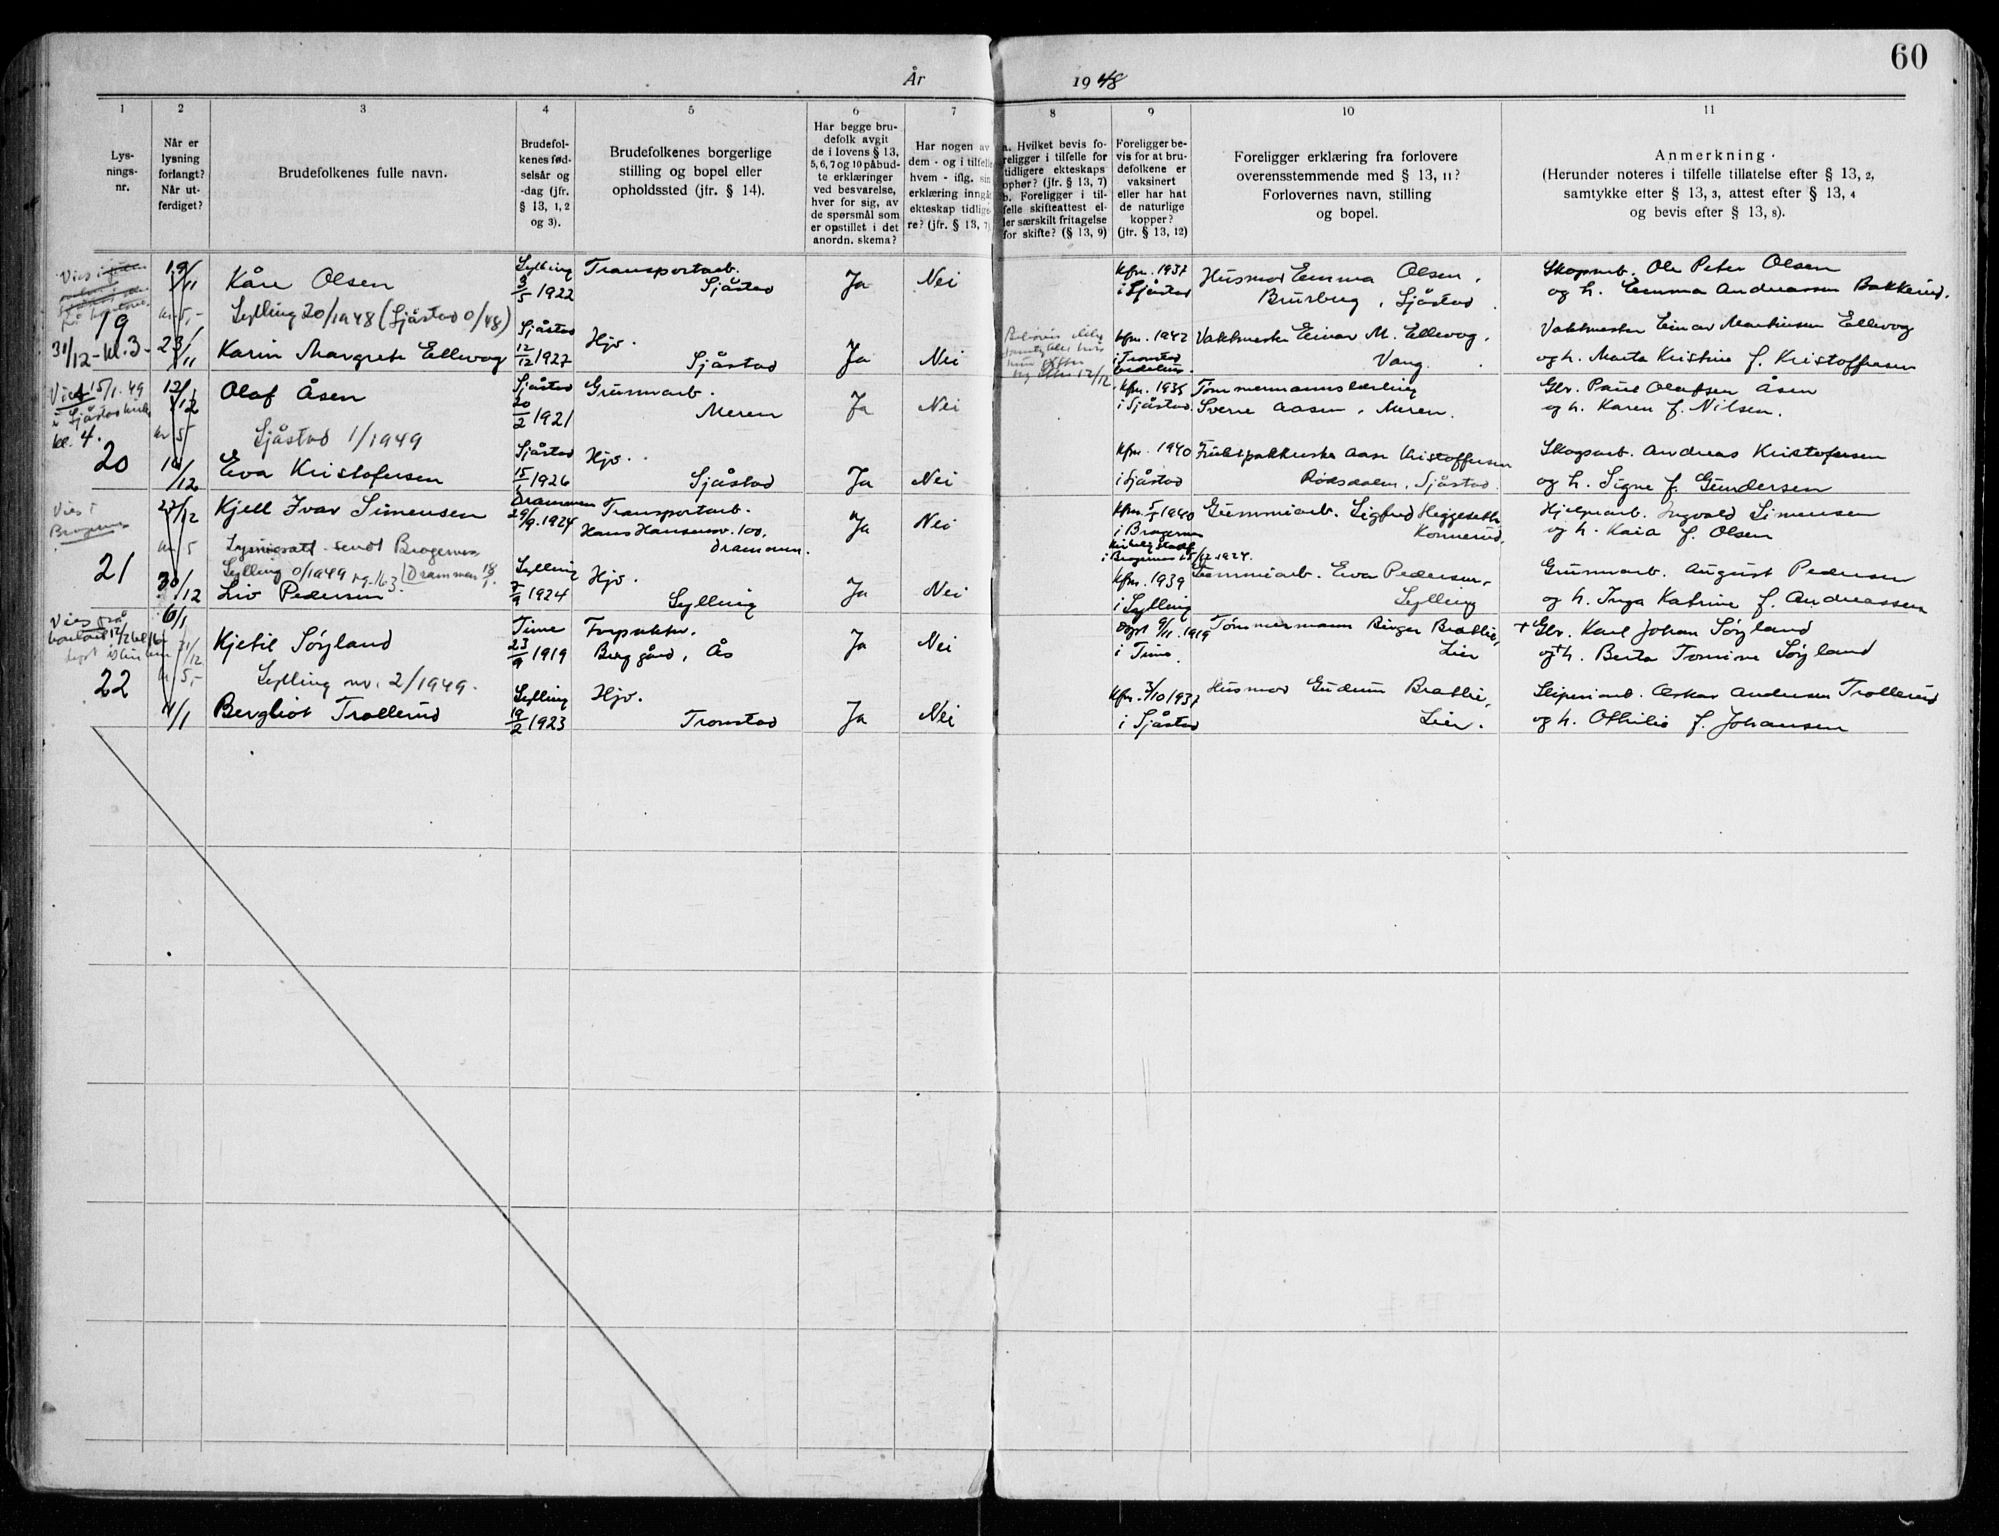 60
År 1948
1
2
3
4
5
6
7
8
9
10
11
Lys-
nings-
nr.
Når er
lysning
forlangt?
Når ut-
ferdiget?
Brudefolkenes fulle navn.
Brudefol-
kenes fød-
selsår og
-dag (jfr.
§ 13, 1, 2
og 3).
Brudefolkenes borgerlige
stilling og bopel eller
opholdssted (jfr. § 14).
Har begge bru-
defolk avgit
de i lovens § 13,
5, 6, 7 og 10 påbud-
te erklæringer
ved besvarelse,
hver for sig, av
de spørsmål som
er opstillet i det
anordn. skema?
Har nogen av
dem - og i tilfelle
hvem - iflg. sin
erklæring inngåt
ekteskap tidlige-
re? (jfr. § 13, 7)
a. Hvilket bevis fo-
religger i tilfelle for
tidligere ekteskaps
ophør? (jfr. § 13, 7)
b. Foreligger i til-
felle skifteattest el-
ler særskilt fritagelse
for skifte? (§ 13, 9)
Foreligger be-
vis for at bru-
defolkene er
vaksinert
eller har hat
de naturlige
kopper?
(jfr. § 13, 12)
Foreligger erklæring fra forlovere
overensstemmende med § 13, 11?
Forlovernes navn, stilling
og bopel.
Anmerkning.
(Herunder noteres i tilfelle tillatelse efter § 13, 2,
samtykke efter § 13, 3, attest efter § 13, 4
og bevis efter § 13, 8).
19
31/12 - kl. 3 -
19/11
Kåre Olsen
Sylling
3/5 1922
Transportarb.
Sjåstad
Ja
Nei
Kfm. 1937
i Sjåstad
Husmor Emma Olsen,
Brurberg, Sjåstad.
Skogsarb. Ole Peter Olsen
og h. Emma Andreassen Bakkerud.
kr 5,-
Sylling 20/1948 (Sjåstad 0/48)
23/11
Karin Margrete Ellevog
Sjåstad
12/12 1927
Hjv.
Sjåstad
Ja
Nei
Kfm. 1942
i Transtad
Vaktmester Einar M. Ellevog,
Vang.
Vaktmester Einar Martinsen Ellevog
og h. Marta Kristine f. Kristoffersen
Viet 15/1. 49
i Sjåstad kirke
kl. 4.
20
12/12
Olaf Åsen
Sjåstad
20/2 1921
Grunnarb.
Meren
Ja
Nei
Kfm. 1935
i Sjåstad
Tømmermannslærling
Sverre Aasen, Meren.
Gbr. Paul Olafsen Åsen
og h. Karen f. Nilsen.
kr 5
Sjåstad 1/1949
14/12
Eva Kristofersen
Sjåstad
15/1 1926
Hjv.
Sjåstad
Ja
Nei
Kfm. 1940
i Sjåstad
Aase Kristoffersen
Rødsdalen, Sjåstad.
Skogsarb. Andreas Kristofersen
og h. Signe f. Gundersen
Vies i
Bragernes
21
22/12
Kjell Ivar Simensen
Drammen
29/9. 1924
Transportarb.
Hans Hansensv. 100,
Drammen.
Ja
Nei
Kfm. 1940
i Bragernes
i Bragernes 25/12 1924.
Gummiarb. Sigfred Heggeseth
Konnerud,
Hjelpearb. Ingvald Simensen
og h. Kaia f. Olsen
kr 5
Lysningsatt. sendt Bragernes
Sylling 0/1949
30/12
Liv Pedersen
Sylling
7/9 1924
Hjv.
Sylling
Ja
Nei
Kfm. 1939
i Sylling
Gummiarb. Eva Pedersen,
Sylling
Grunnarb. August Pedersen
og h. Inga Katrine f. Andreassen
22
6/1
Kjetil Søyland
Time
23/9 1919
Forpakter.
Berg gård, Ås
Ja
Nei
Døpt 9/11. 1919
i Time.
Tømmermann Birger Brattlie,
Lier
+ Gbr. Karl Johan Søyland
og + h. Berta Tomine Søyland
kr 5,-
Sylling nr. 2/1949.
11/1
Bergliot Trollerud
Sylling
19/2 1923
Hjv.
Tronstad
Ja
Nei
Kfm. 3/10 1937
i Sjåstad
Husmor Gudrun Brattlie,
Lier.
Sliperiarb. Oskar Andersen Trollerud
og h. Othilie f. Johansen